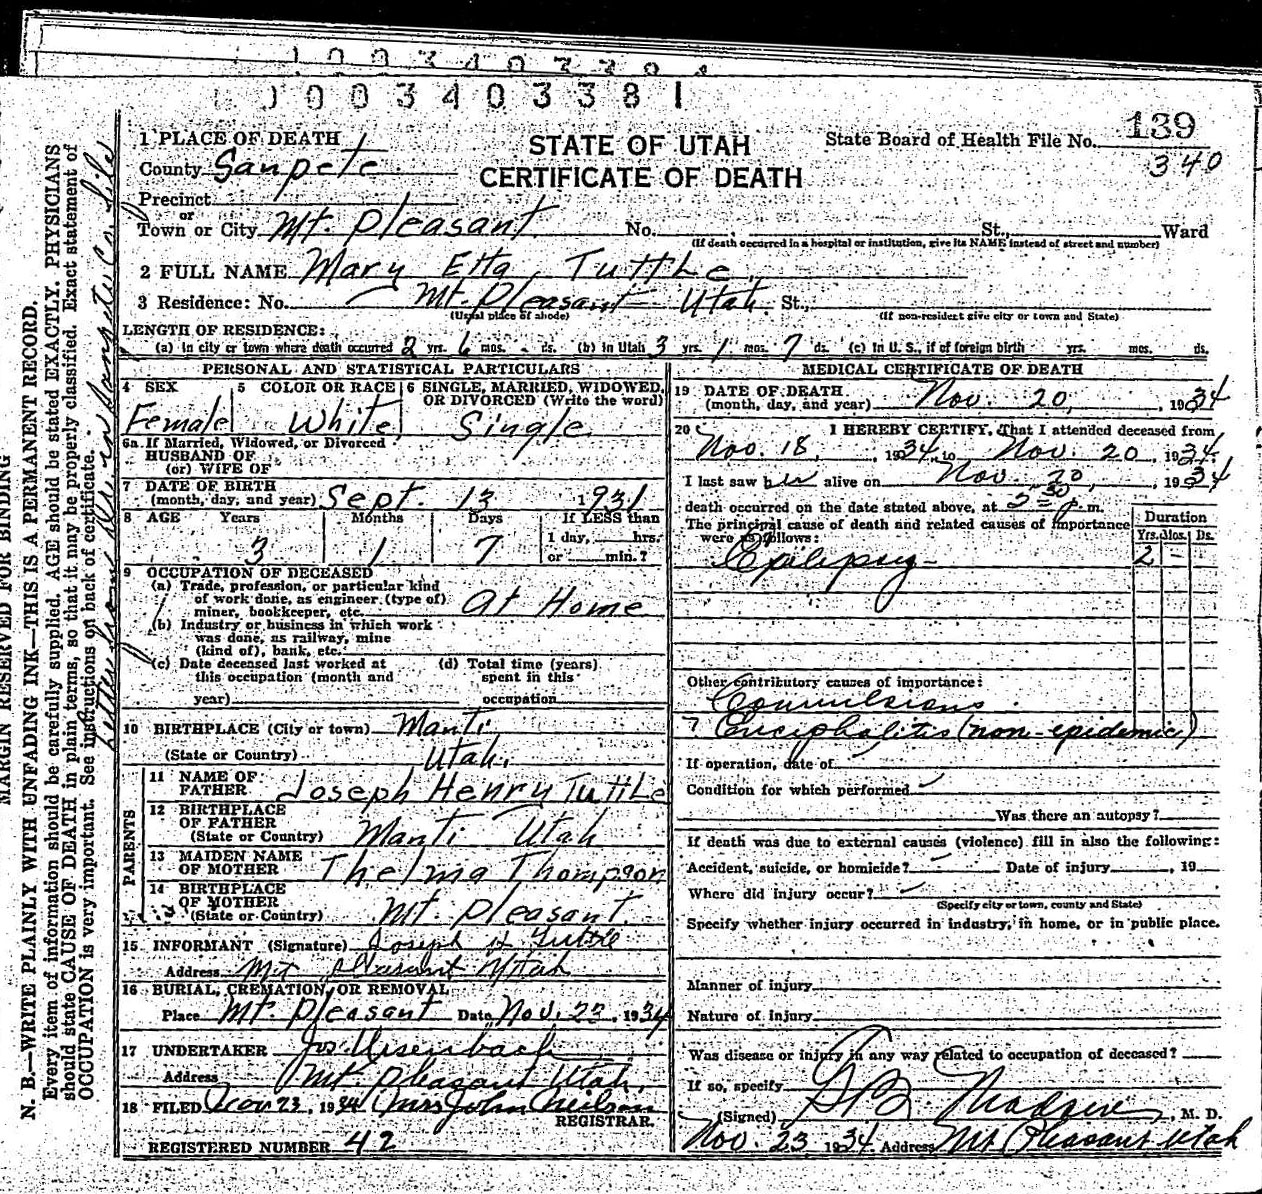 1003403381
139
340
1 PLACE OF DEATH
STATE OF UTAH
CERTIFICATE OF DEATH
State Board of Health File No.
County Sanpete
Precinct
or
Town or City Mt. Pleasant No. St., Ward
(If death occurred in a hospital or institution, give its NAME instead of street and number)
2 FULL NAME Mary Etta Tuttle
3 Residence: No. Mt. Pleasant Utah. St.,
(Usual place of abode) (If non-resident give city or town and State)
LENGTH OF RESIDENCE:
(a) In city or town where death occurred 2 yrs. 6 mos. - ds. (b) In Utah 3 yrs. 1 mos. 7 ds. (c) In U. S., if of foreign birth yrs. mos. ds.
PERSONAL AND STATISTICAL PARTICULARS
4 SEX 5 COLOR OR RACE 6 SINGLE, MARRIED, WIDOWED, OR DIVORCED (Write the word)
Female White Single
6a If Married, Widowed, or Divorced
HUSBAND OF
(or) WIFE OF
7 DATE OF BIRTH
(month, day, and year) Sept. 13 1931
8 AGE Years Months Days If LESS than
1 day, hrs.
or min.?
3 1 7
9 OCCUPATION OF DECEASED
(a) Trade, profession, or particular kind
of work done, as engineer (type of)
miner, bookkeeper, etc. At Home
(b) Industry or business in which work
was done, as railway, mine
(kind of), bank, etc.
(c) Date deceased last worked at
this occupation (month and
year)
(d) Total time (years)
spent in this
occupation
10 BIRTHPLACE (City or town) Manti
(State or Country) Utah.
PARENTS
11 NAME OF
FATHER Joseph Henry Tuttle
12 BIRTHPLACE
OF FATHER
(State or Country) Manti Utah
13 MAIDEN NAME
OF MOTHER Thelma Thompson
14 BIRTHPLACE
OF MOTHER
(State or Country) Mt. Pleasant.
15 INFORMANT (Signature) Joseph H Tuttle
Address Mt Pleasant Utah
16 BURIAL, CREMATION, OR REMOVAL
Place Mt. Pleasant Date Nov. 23, 1934
17 UNDERTAKER
Address Mt. Pleasant Utah.
18 FILED Nov 23, 1934 Mrs John Neilson
REGISTRAR.
REGISTERED NUMBER 42
MEDICAL CERTIFICATE OF DEATH
19 DATE OF DEATH
(month, day, and year) Nov. 20, 1934
20 I HEREBY CERTIFY, That I attended deceased from
Nov. 18, 1934, to Nov. 20, 1934.
I last saw her alive on Nov. 20, 1934
death occurred on the date stated above, at 5:30 p. m.
The principal cause of death and related causes of importance
were as follows:
Duration
Yrs. Mos. Ds.
Epilepsy - 2 -
Other contributory causes of importance:
Convulsions
? Enciphalitis (non-epidemic)
If operation, date of
Condition for which performed
Was there an autopsy?
If death was due to external causes (violence) fill in also the following:
Accident, suicide, or homicide? Date of injury , 19
Where did injury occur?
(Specify city or town, county and State)
Specify whether injury occurred in industry, in home, or in public place.
Manner of injury
Nature of injury
Was disease or injury in any way related to occupation of deceased?
If so, specify
(Signed) Madsen, M. D.
Nov. 23 1934. Address Mt Pleasant Utah
MARGIN RESERVED FOR BINDING
N. B.—WRITE PLAINLY WITH UNFADING INK—THIS IS A PERMANENT RECORD.
Every item of information should be carefully supplied. AGE should be stated EXACTLY. PHYSICIANS
should state CAUSE OF DEATH in plain terms, so that it may be properly classified. Exact statement of
OCCUPATION is very important. See instructions on back of certificate.